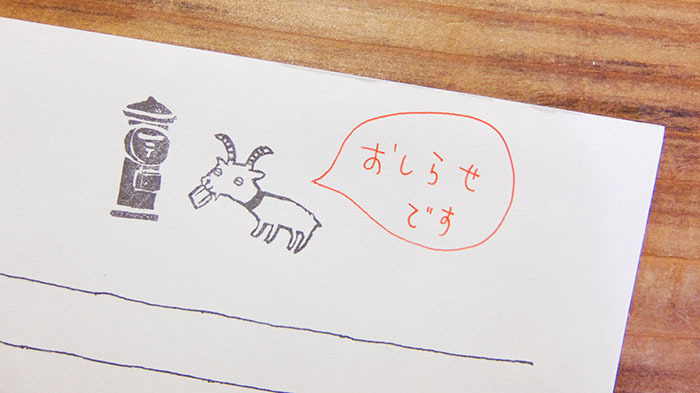 おしらせ
です